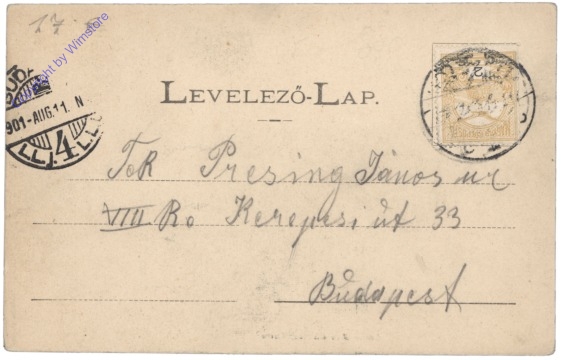 17
Copyright by Wimstore
BUDA
901-AUG.11. N
4
LEVELEZŐ-LAP.
2
Tek Presing János ur
VIII Ro Kerepesi út 33
Budapest